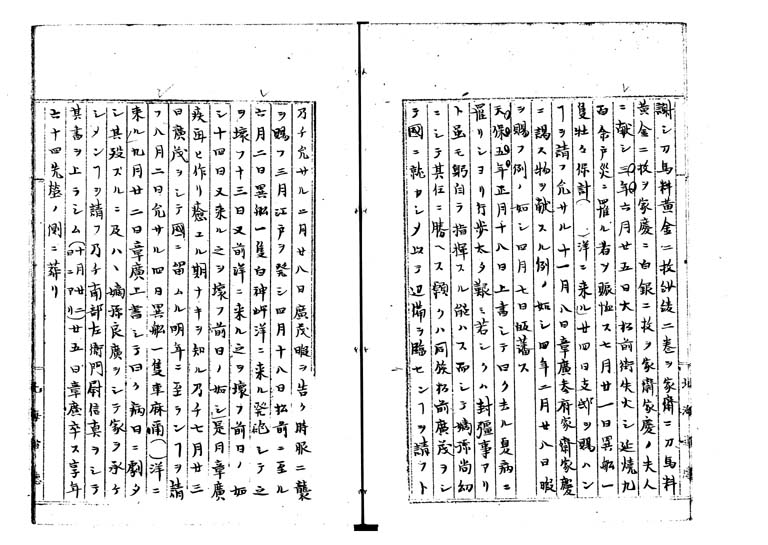 謝シ刀馬料黄金二枚紗綾二巻ヲ家齋ニ刀馬料
黄金二枚ヲ家慶ニ白銀二枚ヲ家齋家慶ノ夫人
ニ献シ三年六月廿五日大松前街失火シ延焼九
百余戸災ニ罹ル者ヲ賑恤ス七月廿一日異船一
隻牡ヶ保計( )洋ニ来ル廿四日支邸ヲ賜ハン
ヿヲ請フ允サル十一月八日章廣表府家齋家慶
ニ謁ス物ヲ献スル例ノ如シ四年二月廿八日暇
ヲ賜フ例ノ如シ四月七日皈藩ス
天保五年正月十八日上書シテ曰ク去ル夏病ニ
罹リシヨリ行歩太タ艱ミ若シクハ封彊事アリ
ト虽モ躬自ラ指揮スル能ハス而シテ嫡孫尚幼
ニシテ其任ニ勝ヘス願クハ同族松前廣茂ヲシ
テ國ニ就カシメ以テ辺備ヲ監セシヿヲ請フト
乃チ允サル二月廿八日廣茂暇ヲ告ク時服二襲
ヲ賜フ三月江戸ヲ発シ四月十八日松前ニ至ル
六月二日異船一隻白神岬洋ニ来ル発砲シテ之
ヲ壊フ十三日又前洋ニ来ル之ヲ壊フ前日ノ如
シ十四日又来ル之ヲ壊フ前日ノ如シ是月章廣
疾再ヒ作リ癒エル期ナキヲ知ル乃チ七月廿三
日廣茂ヲシテ國ニ留ムル明年ニ至ランヿヲ請
フ八月二日允サル四日異船一隻車麻甫( )洋ニ
来ル九月廿二日章廣上書シテ曰ク病日ニ劇タ
シ其殁スルニ及ハヽ嫡孫良廣ヲシテ家ヲ承ケ
シメンヿヲ請フ乃チ南部左衛門尉信真ヲシテ
其書ヲ上ラシム(十月廿二日ニアリ)廿五日章廣卒ス享年
六十四先塋ノ側ニ葬リ